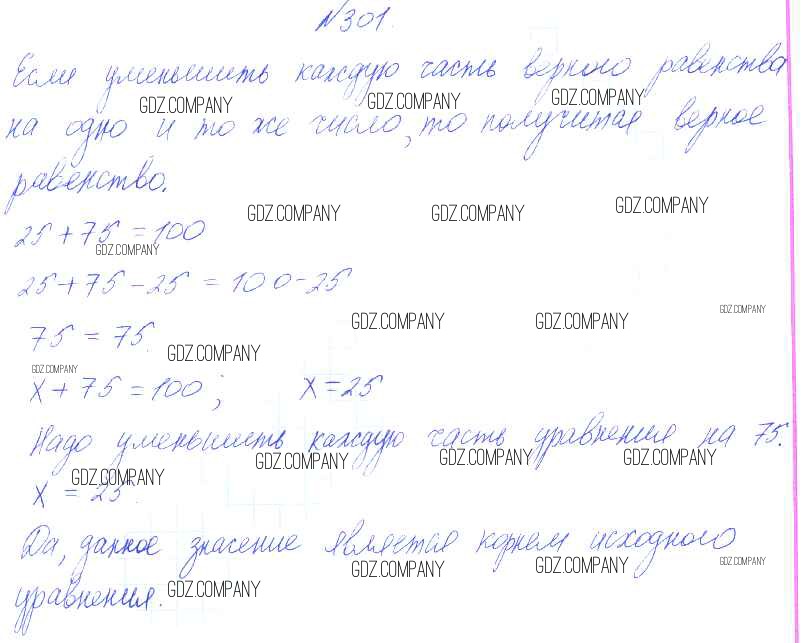 №301.
Если уменьшить каждую часть верного равенства
GDZ.COMPANY GDZ.COMPANY GDZ.COMPANY
на одно и то же число, то получится верное
равенство.
GDZ.COMPANY GDZ.COMPANY GDZ.COMPANY
25+75=100
GDZ.COMPANY
25+75-25=100-25
GDZ.COMPANY GDZ.COMPANY GDZ.COMPANY
75=75.
GDZ.COMPANY
GDZ.COMPANY
x+75=100; x=25
Надо уменьшить каждую часть уравнения на 75.
GDZ.COMPANY GDZ.COMPANY GDZ.COMPANY GDZ.COMPANY
x = 25.
Да, данное значение является корнем исходного
GDZ.COMPANY GDZ.COMPANY GDZ.COMPANY
уравнения.
GDZ.COMPANY